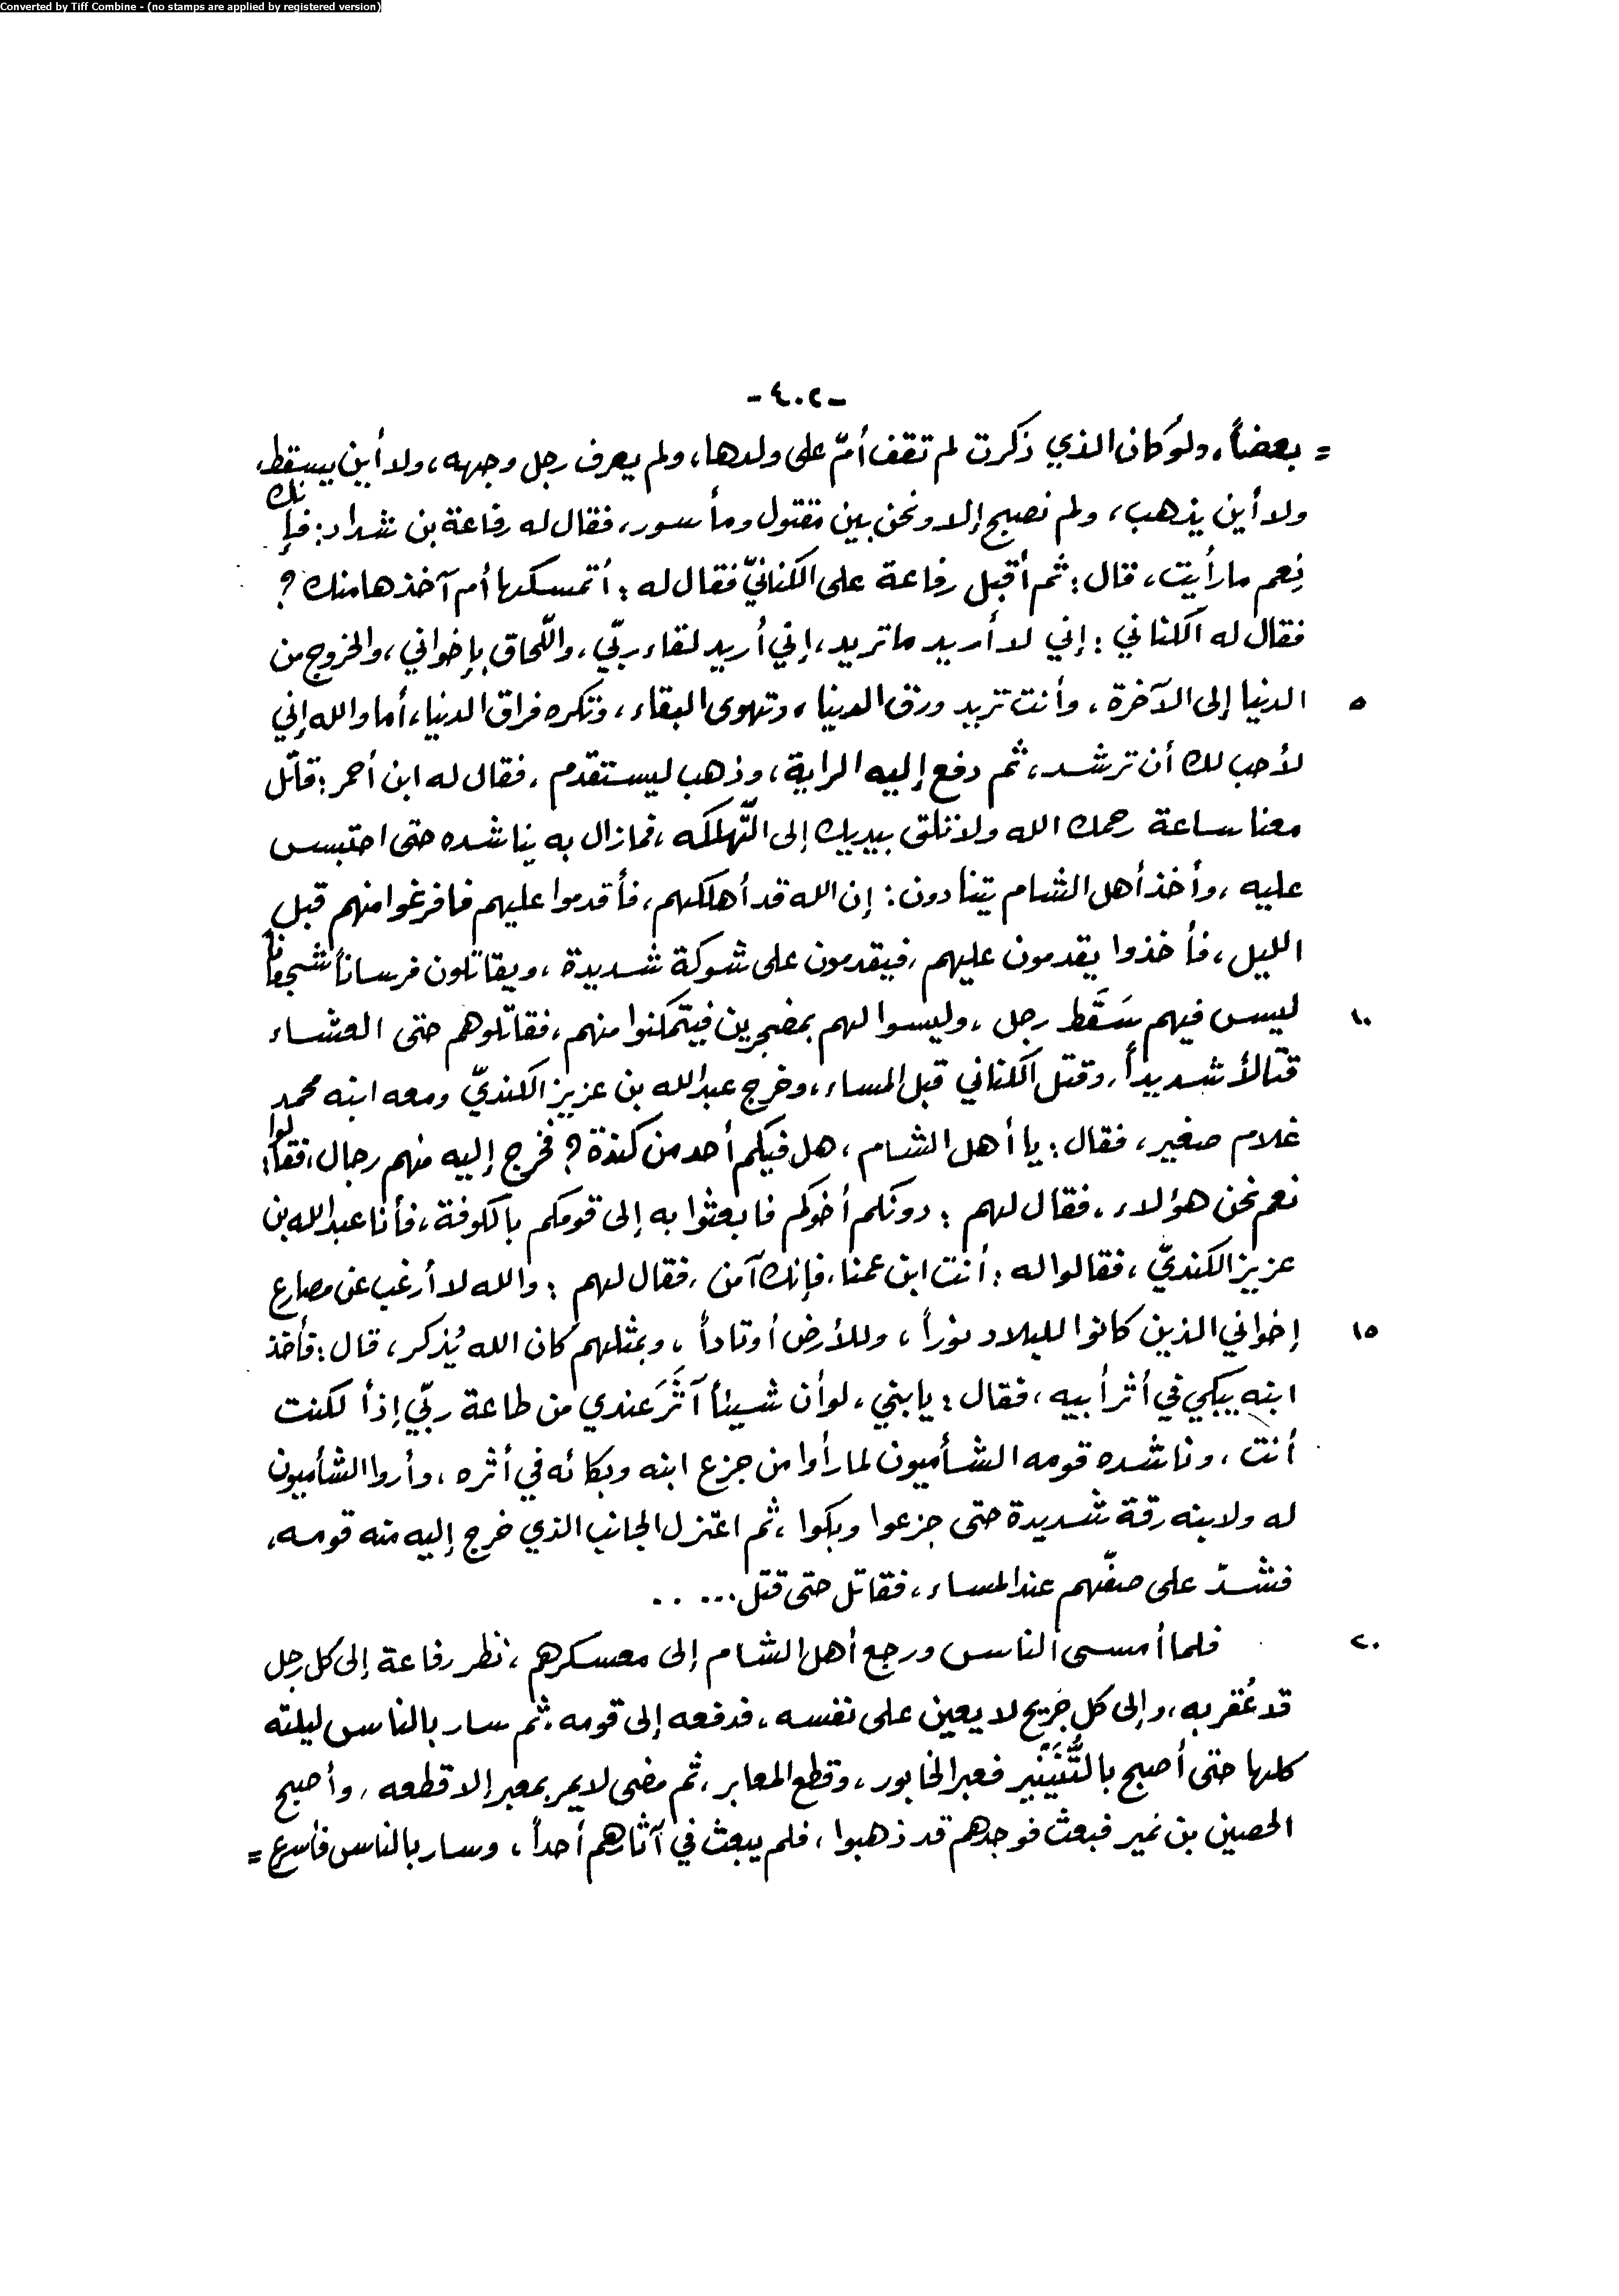 Converted by Tiff Combine - (no stamps are applied by registered version)
-٤٠٢-
= بعضاً، ولو كان الذي ذكرت لم تقف أمّ على ولدها، ولم يعرف رجل وجهه، ولا أين يسقط،
ولا أين يذهب، ولم نصبح إلا ونحن بين مقتول ومأسور، فقال له رفاعة بن شداد: فإنك
نِعم ما رأيت، قال: ثم أقبل رفاعة على الكنانيّ فقال له: أتمسكها أم آخذها منك؟
فقال له الكناني: إني لا أريد ما تريد، إني أريد لقاء ربّي، واللّحاق بإخواني، والخروج من
٥ الدنيا إلى الآخرة، وأنت تريد ورق الدنيا، وتهوى البقاء، وتكره فراق الدنيا، أما والله إني
لأحب لك أن ترشد، ثم دفع إليه الراية، وذهب ليستقدم، فقال له ابن أحمر: قاتل
معنا ساعة رحمك الله ولا تلق بيديك إلى التّهلكه، فمازال به يناشده حتى احتبس
عليه، وأخذ أهل الشام يتنادون: إن الله قد أهلكهم، فأقدموا عليهم فافرغوا منهم قبل
الليل، فأخذوا يقدمون عليهم، فيقدمون على شوكة شديدة، ويقاتلون فرساناً شجعاناً
١٠ ليس فيهم سَقَط رجل، وليسوا لهم بمضجرين فيتمكنوا منهم، فقاتلوهم حتى العشاء
قتالاً شديداً، وقتل الكناني قبل المساء، وخرج عبدالله بن عزيز الكنديّ ومعه ابنه محمد
غلام صغير، فقال: يا أهل الشام، هل فيكم أحد من كندة؟ فخرج إليه منهم رجال، فقالوا:
نعم نحن هؤلاء، فقال لهم: دونكم أخوكم فابعثوا به إلى قومكم بالكوفة، فأنا عبدالله بن
عزيز الكنديّ، فقالوا له: أنت ابن عمنا، فإنك آمن، فقال لهم: والله لا أرغب عن مصارع
١٥ إخواني الذين كانوا للبلاد نوراً، وللأرض أوتاداً، وبمثلهم كان الله يُذكر، قال: فأخذ
ابنه يبكي في أثر أبيه، فقال: يا بني، لو أن شيئاً آثَرَ عندي من طاعة ربّي إذاً لكنت
أنت، وناشده قومه الشأميون لما رأوا من جزع ابنه وبكائه في أثره، وأروا الشأميون
له ولابنه رقة شديدة حتى جزعوا وبكوا، ثم اعتزل الجانب الذي خرج إليه منه قومه،
فشدّ على صفّهم عند المساء، فقاتل حتى قتل.....
٢٠ فلما أمسى الناس ورجع أهل الشام إلى معسكرهم، نظر رفاعة إلى كل رجل
قد عُقر به، وإلى كل جريح لا يعين على نفسه، فدفعه إلى قومه، ثم سار بالناس ليلته
كلها حتى أصبح بالتُّنَيْنِير فعبر الخابور، وقطع المعابر، ثم مضى لا يمر بمعبر إلا قطعه، وأصبح
الحصين بن نمير فبعث فوجدهم قد ذهبوا، فلم يبعث في آثارهم أحداً، وسار بالناس فأسرع =